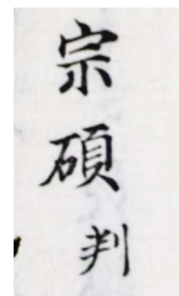 宗碩判